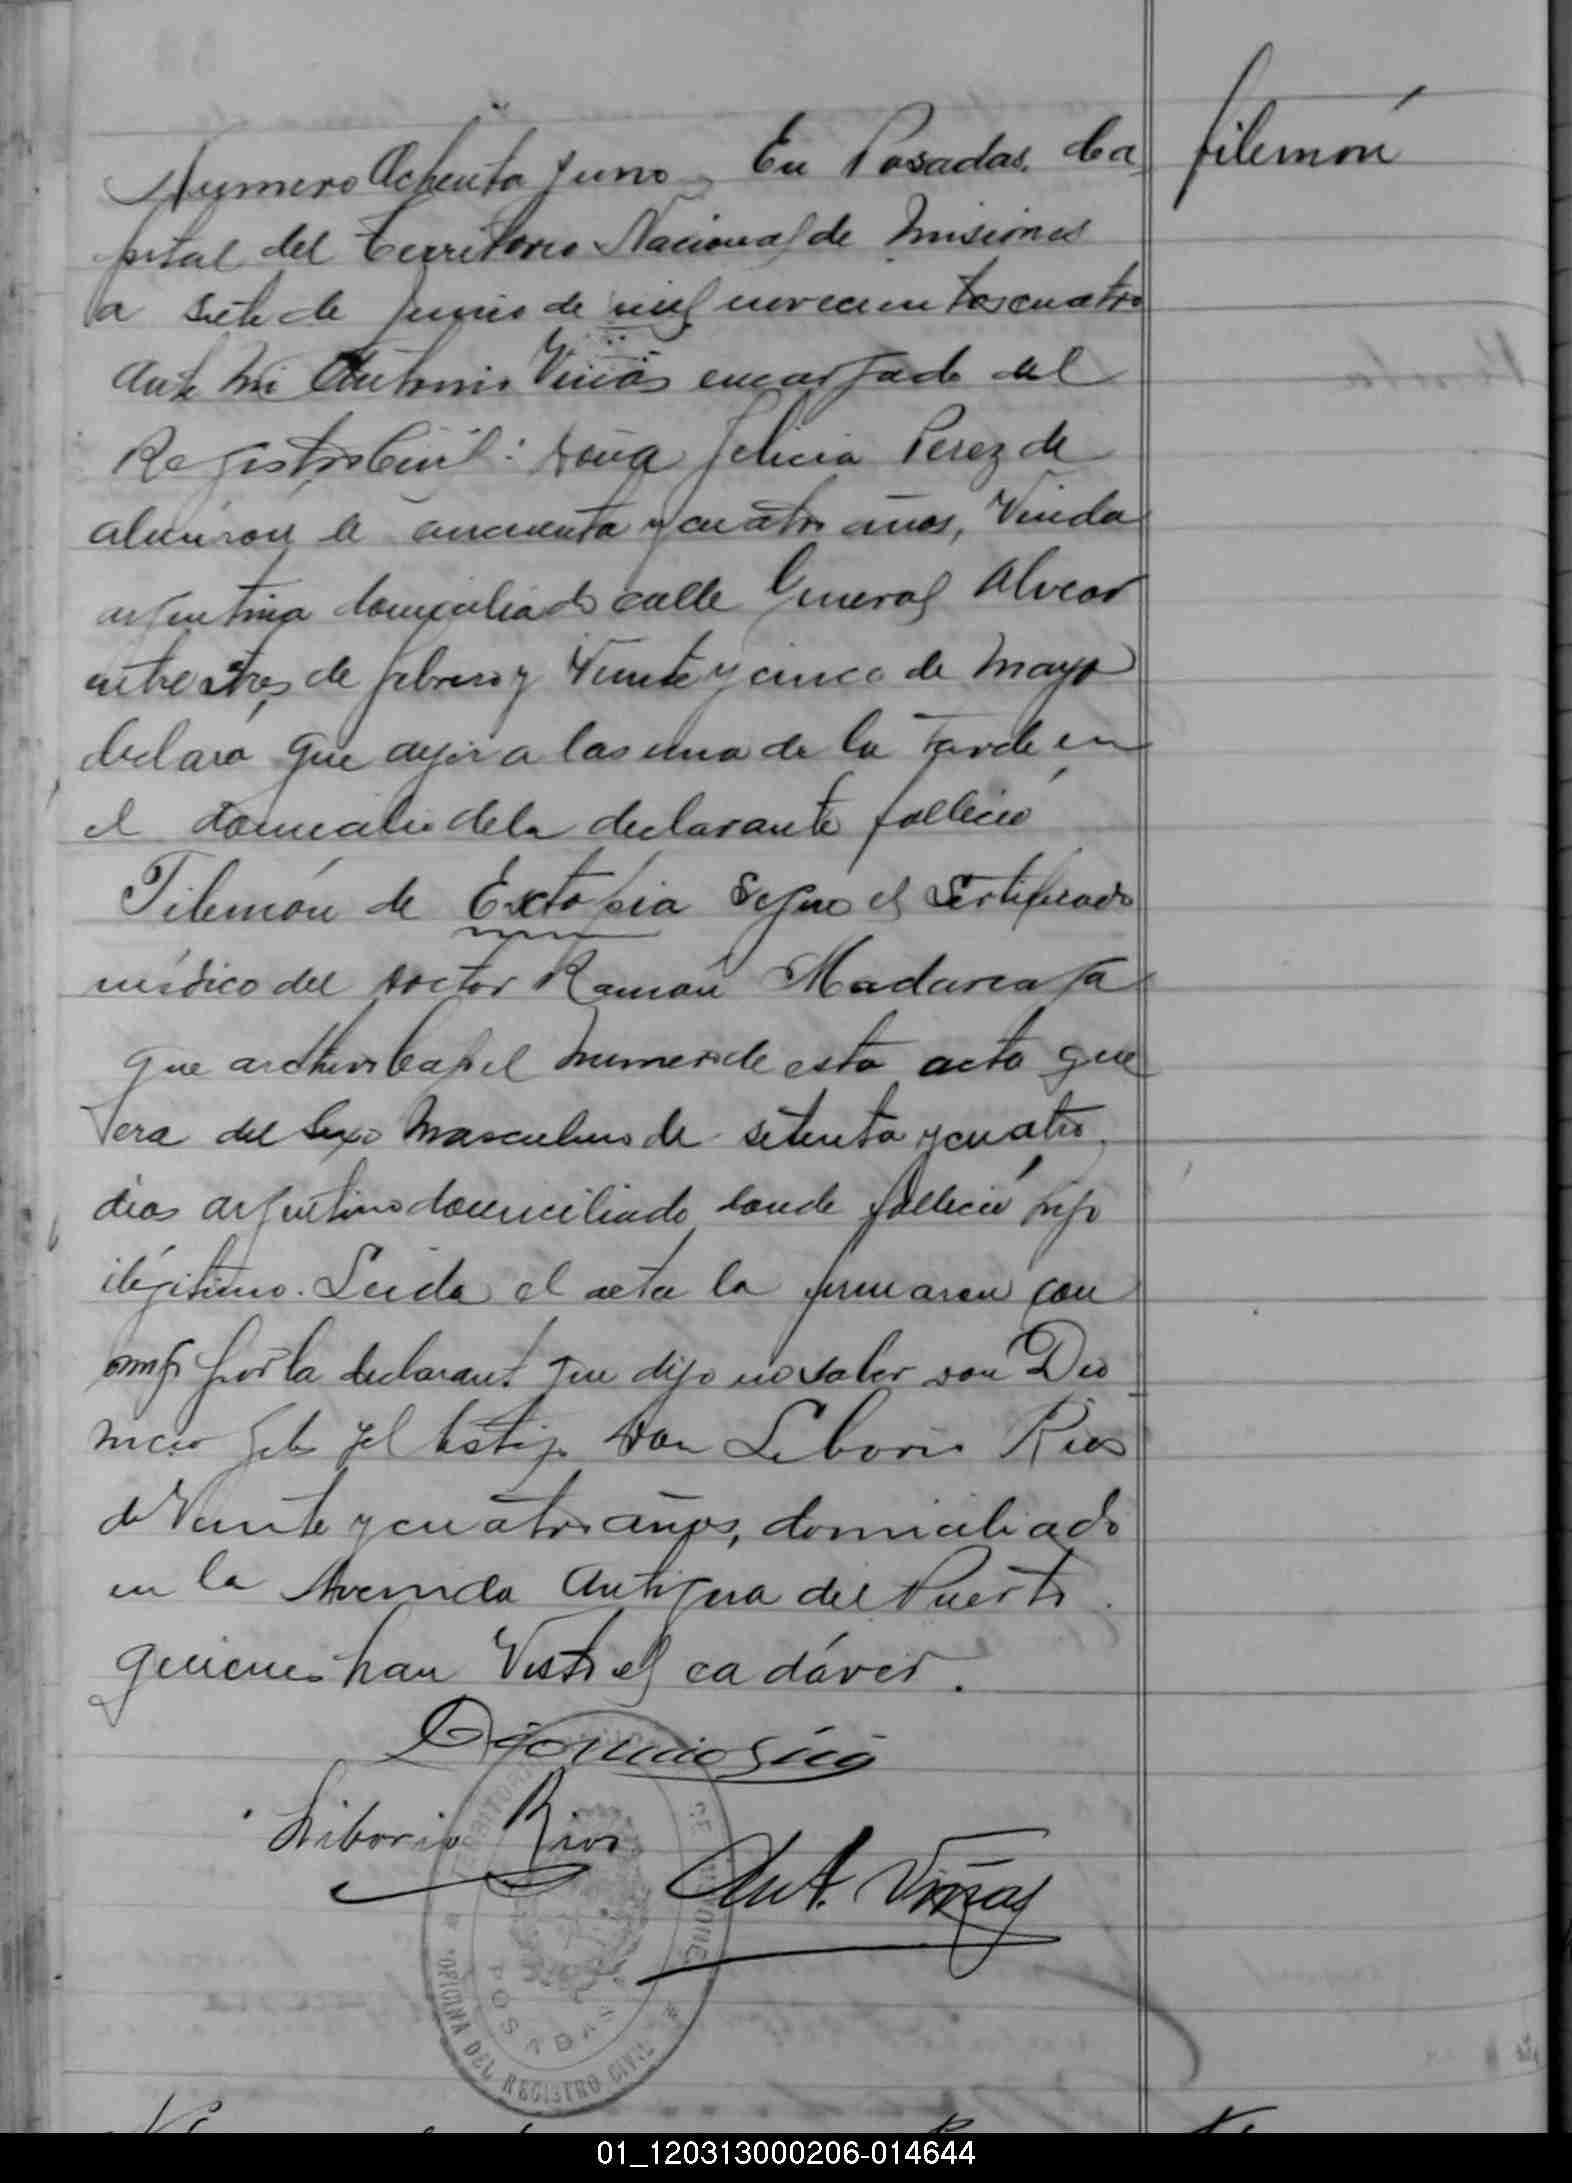 Filemón
Numero Ochenta y uno. En Posadas, Ca
pital del Territorio Nacional de Misiones
a siete de Junio de mil novecientos cuatro
ante mi Antonio Viñas encargado del
Registro Civil: Doña Felicia Perez de
de cincuenta y cuatro años, Viuda
argentina domiciliado calle General Alvear
entre tres de febrero y Veinte y cinco de Mayo
declaró que ayer a las una de la tarde en
el domicilio de la declarante falleció
Filemón de Ectopia segun el certificado
médico del doctor Ramón Madariaga
que archivo bajo el numero de esta acta que
era del sexo masculino de setenta y cuatro
dias argentino domiciliado donde falleció hijo
ilégitimo. Leida el acta la firmaron con
migo por la declarante que dijo no saber don Dio
nicio y el testigo Don Liborio Rios
de Veinte y cuatro años, domiciliado
en la Avenida Antigua del Puerto
quienes han Visto el cadáver.
Dionicio
Liborio Rios
Ant. Viñas
OFICINA DEL REGISTRO CIVIL
POSADAS
01_120313000206-014644